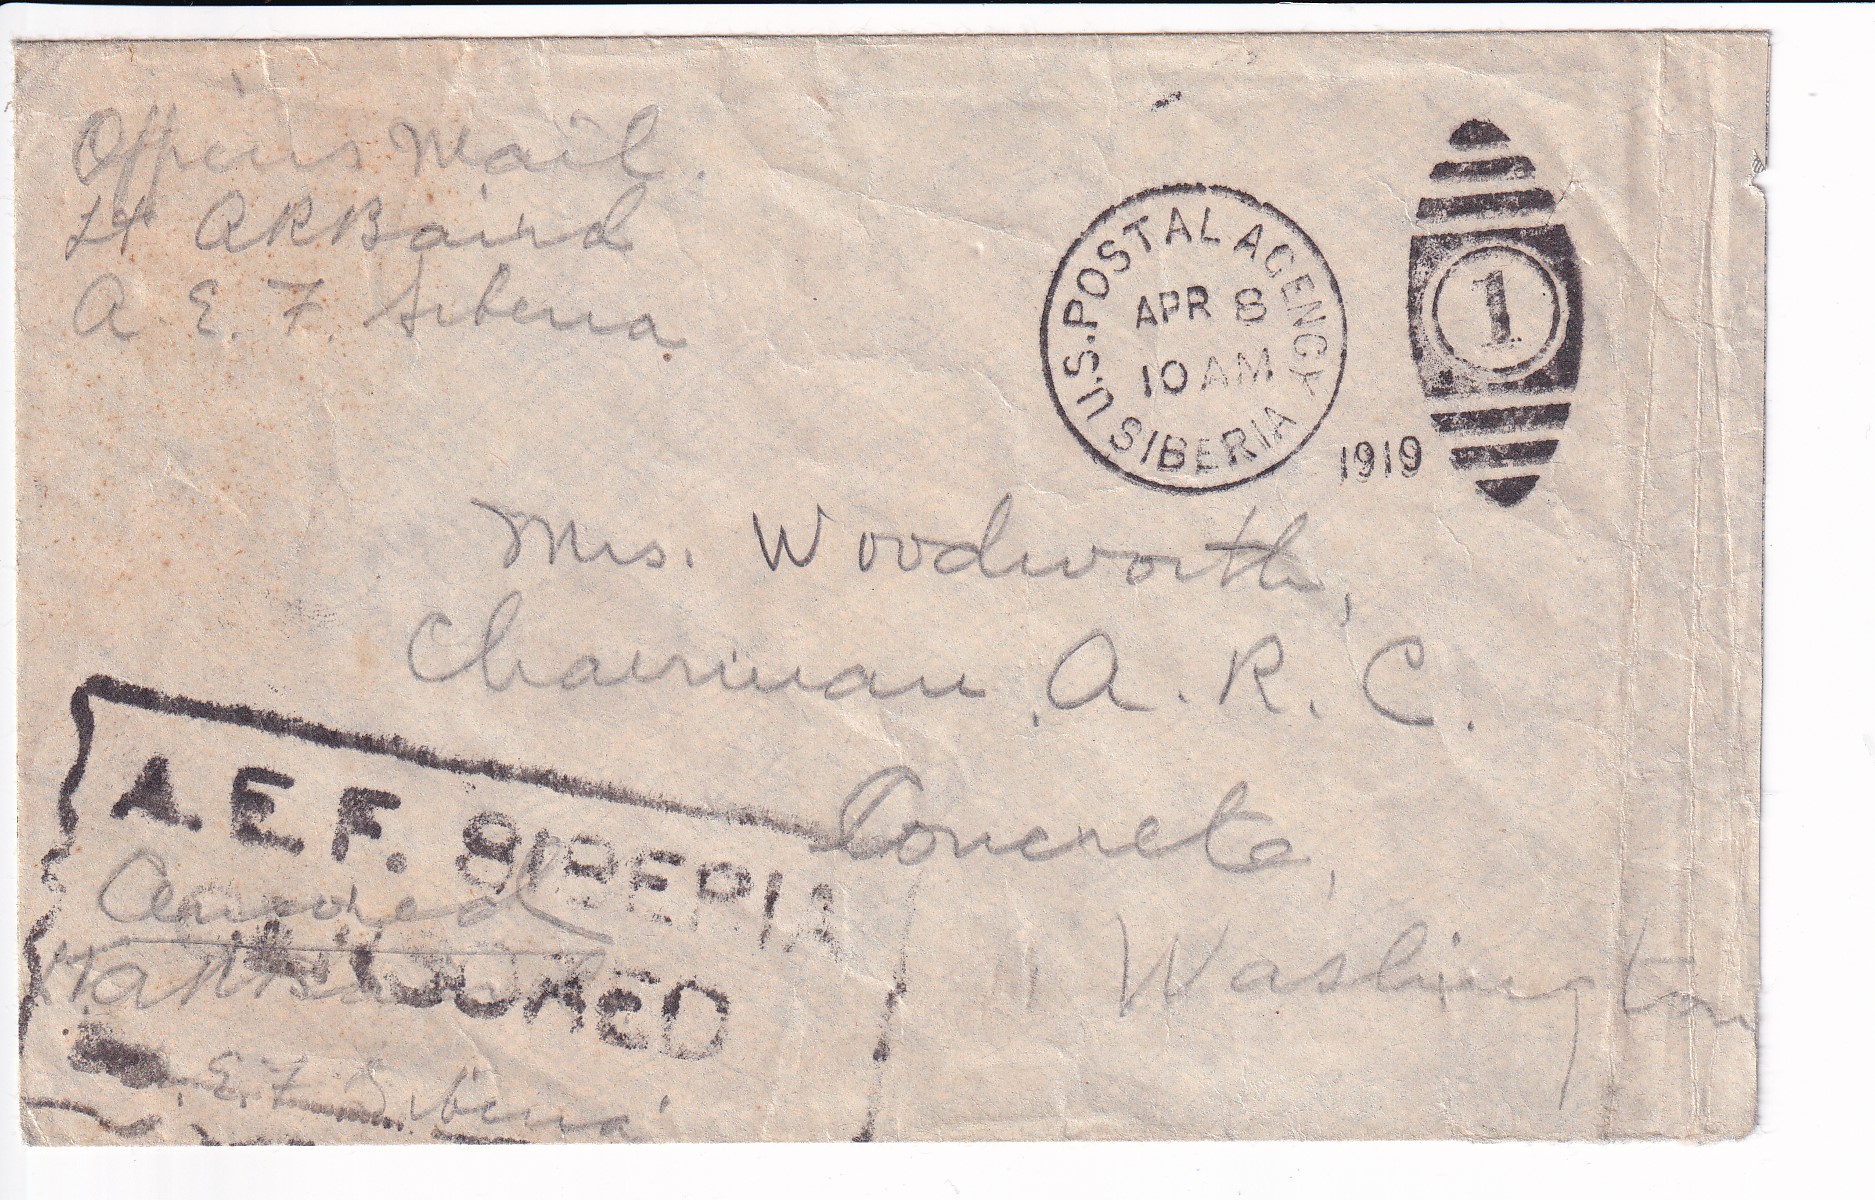 Officers Mail.
Lt A R Baird
A. E. F. Siberia
U.S. POSTAL AGENCY
APR 8
10 AM
SIBERIA
1919
1
Mrs. Woodworth,
Chairman A. R. C.
Concrete,
" Washington
A.E.F. SIBERIA
Censored
Lt A R Baird
E. F. Siberia